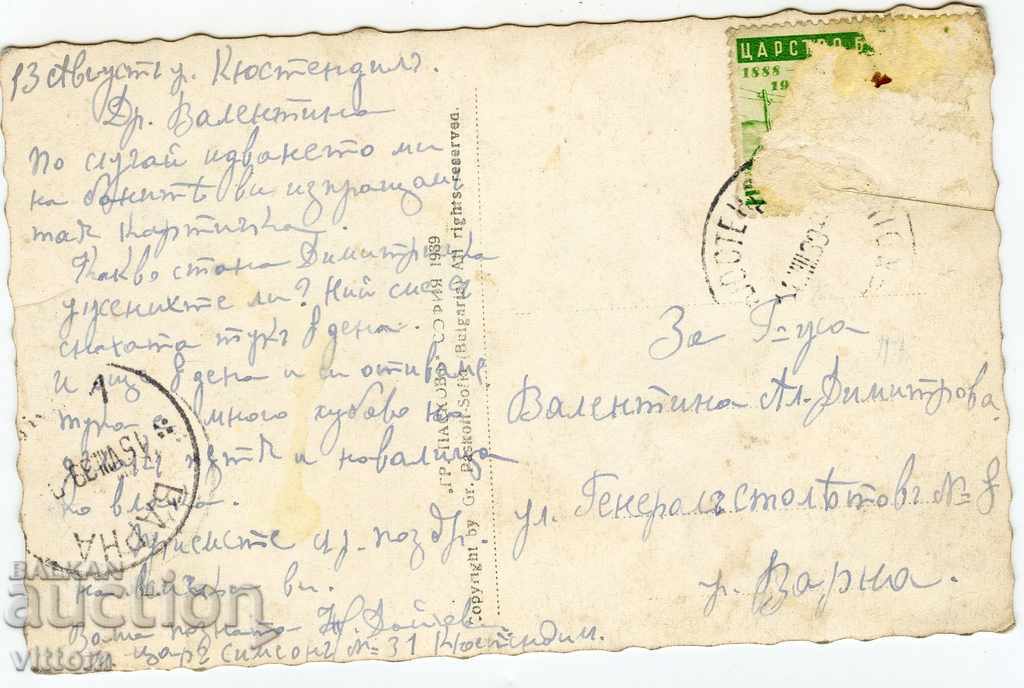 13 Августъ г. Кюстендилъ
Др. Валентина
по случай идването ми
на банитѣ ви изпращам
таз картичка.
Какво стана Димитричка
ужениxте ли? Ний сме
снахата тукъ 8 дена.
И още 8 дена и си отиваме
тука много хубаво
пѫть и
Приемете
ви.
Ваша позната
царъ Симеонъ № 31 Кюстендил.
ГР. ПАСКОВЪ - СОФИЯ 1939
Copyright by Gr. Paskoff-Sofia (Bulgaria) All rights reserved.
ЦАРСТВО Б
1888 -
19
ЮСТЕН
VIII.39
За Г-ца
Валентина Ал. Димитрова.
ул. Генералъ столѣтовъ № 8
г. Варна.
15.VIII.39
ВАРНА
BALKAN
auction
vittom